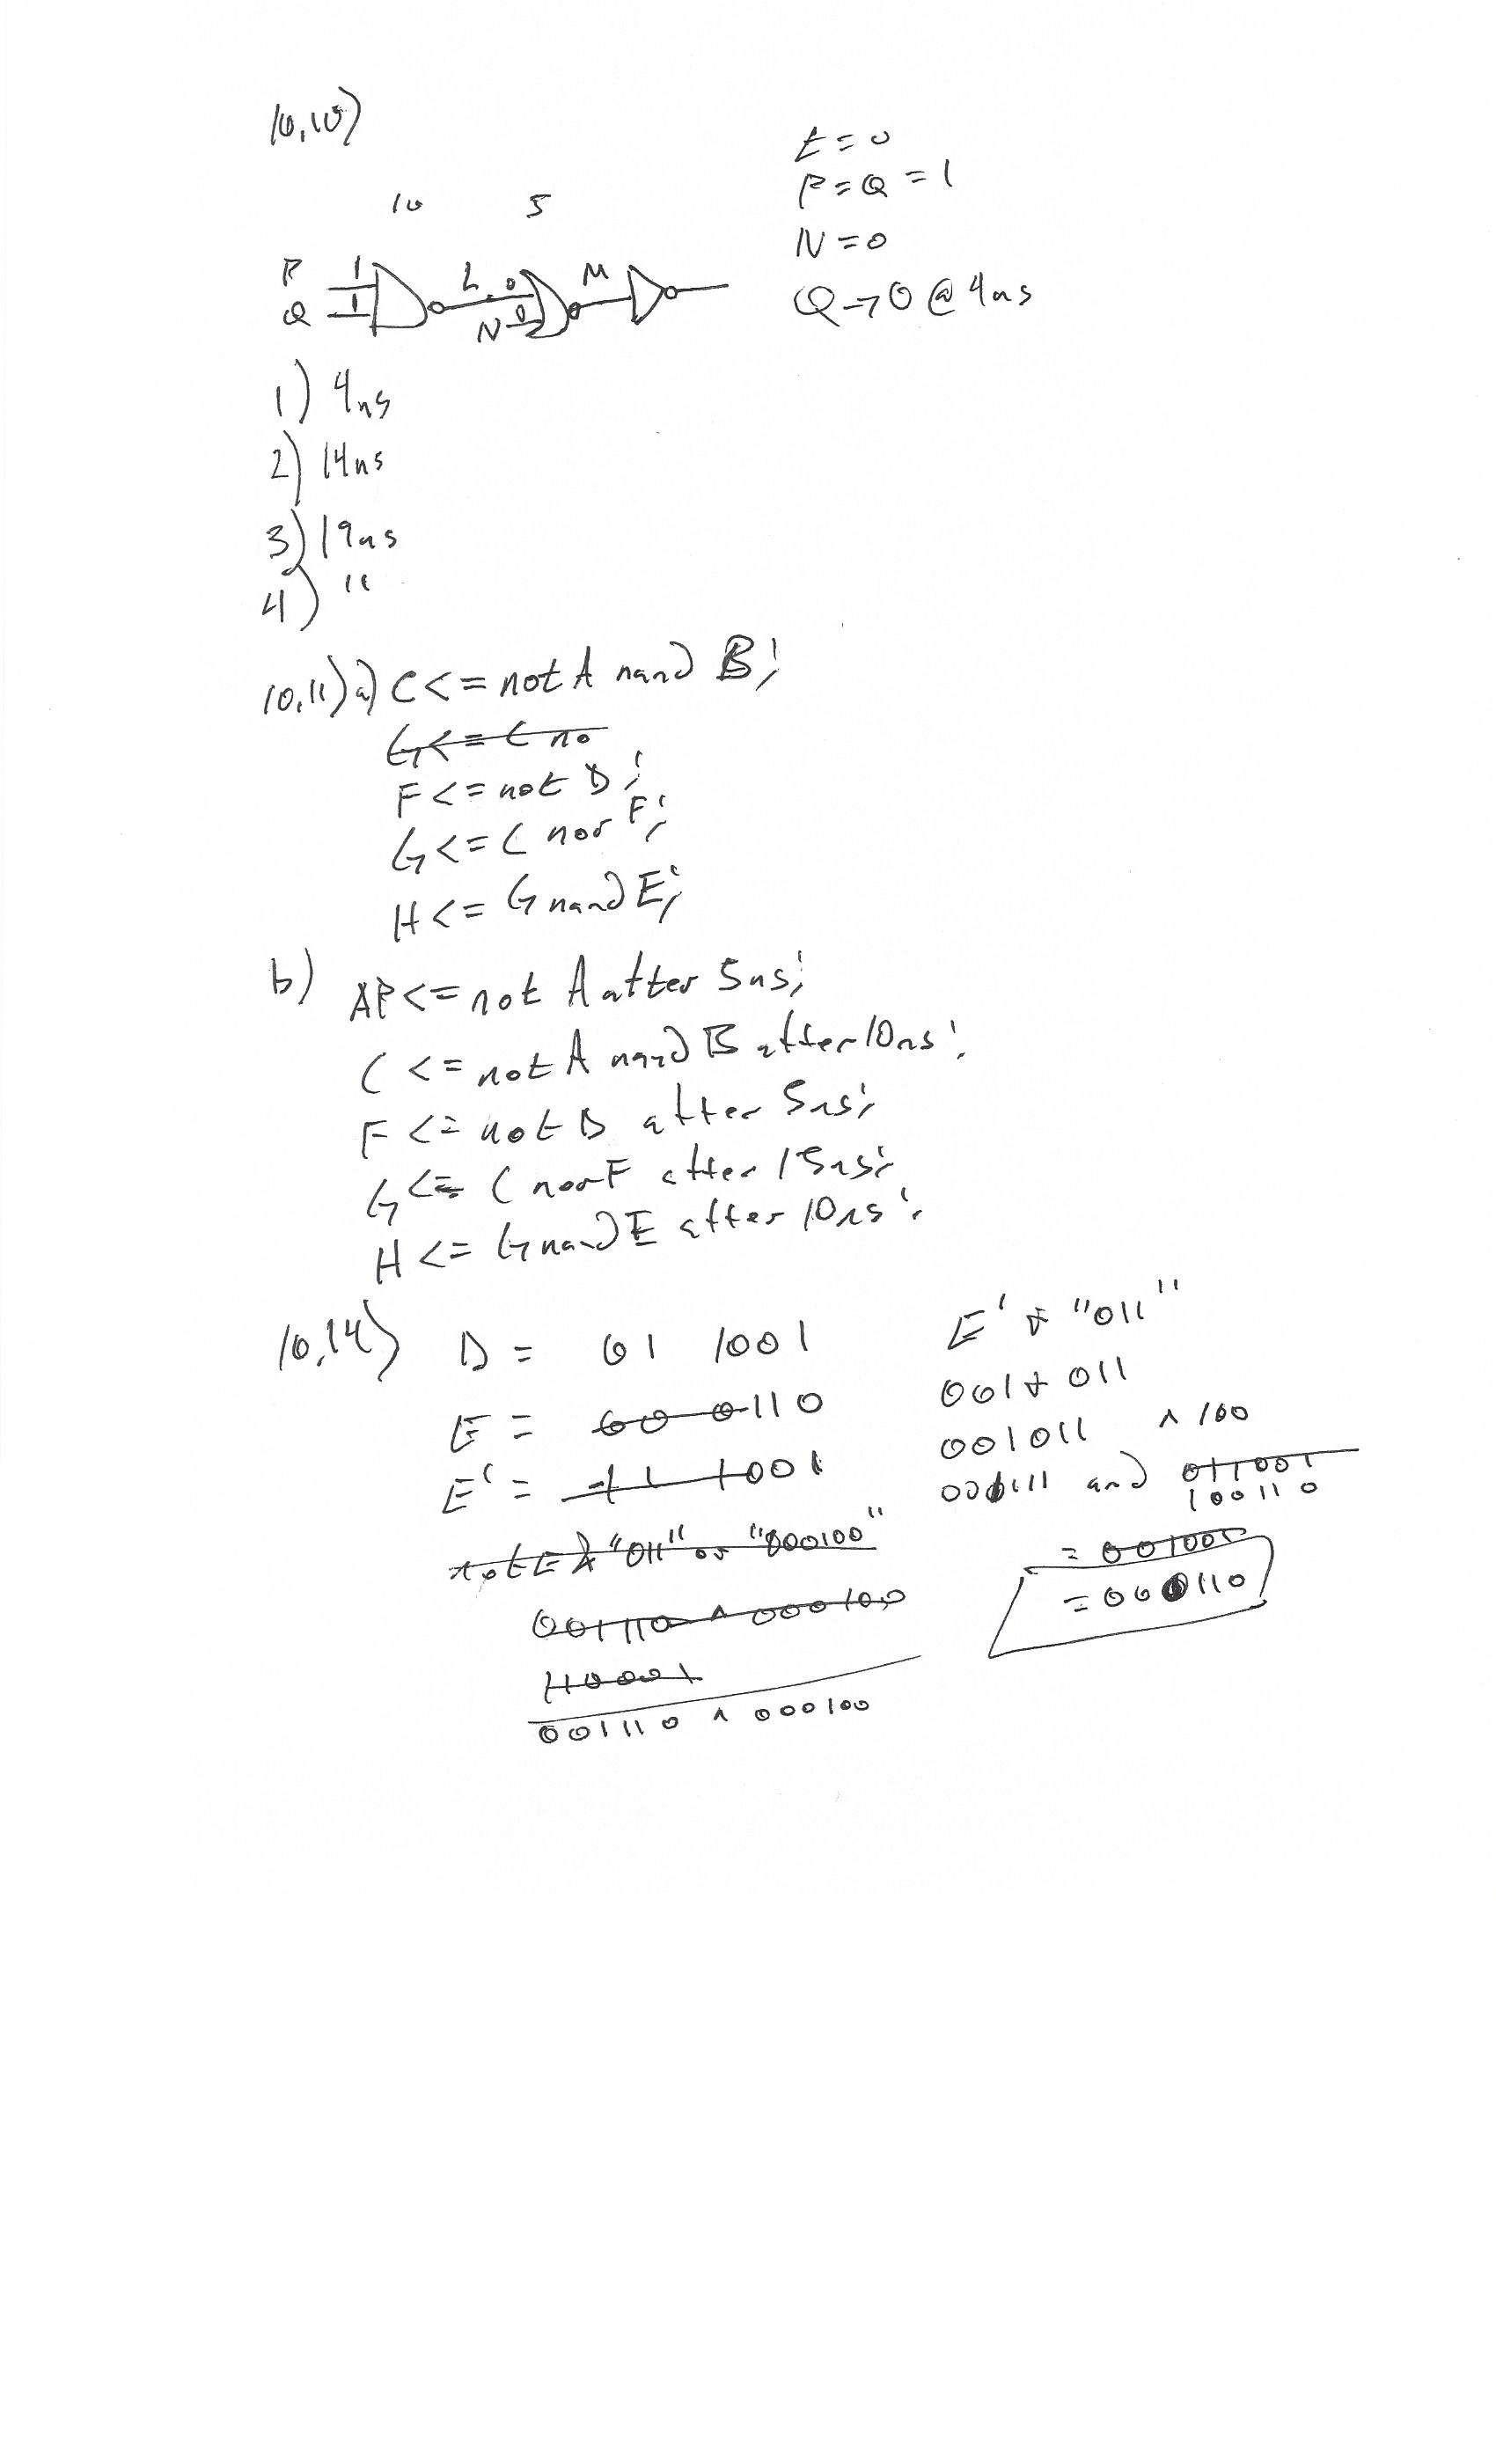 10,10)
t = 0
P = Q = 1
N = 0
Q → 0 @ 4ns
10 5
P 1 L 0 M
Q 1 N 0
1) 4ns
2) 14ns
3) 19ns
4) "
10,11) a) C <= not A nand B;
G <= C no
F <= not D;
G <= C nor F;
H <= G nand E;
b) AP <= not A after 5ns;
C <= not A nand B after 10ns;
F <= not D after 5ns;
G <= C nor F after 15ns;
H <= G nand E after 10ns;
10,14) D = 01 1001
E = 00 0110
E' = 11 1001
not E & "011" or "000100"
001110 ^ 000100
110001
001110 ^ 000100
E' & "011"
001 & 011
001011 ^ 100
001111 and 011001
100110
= 001001
= 000110